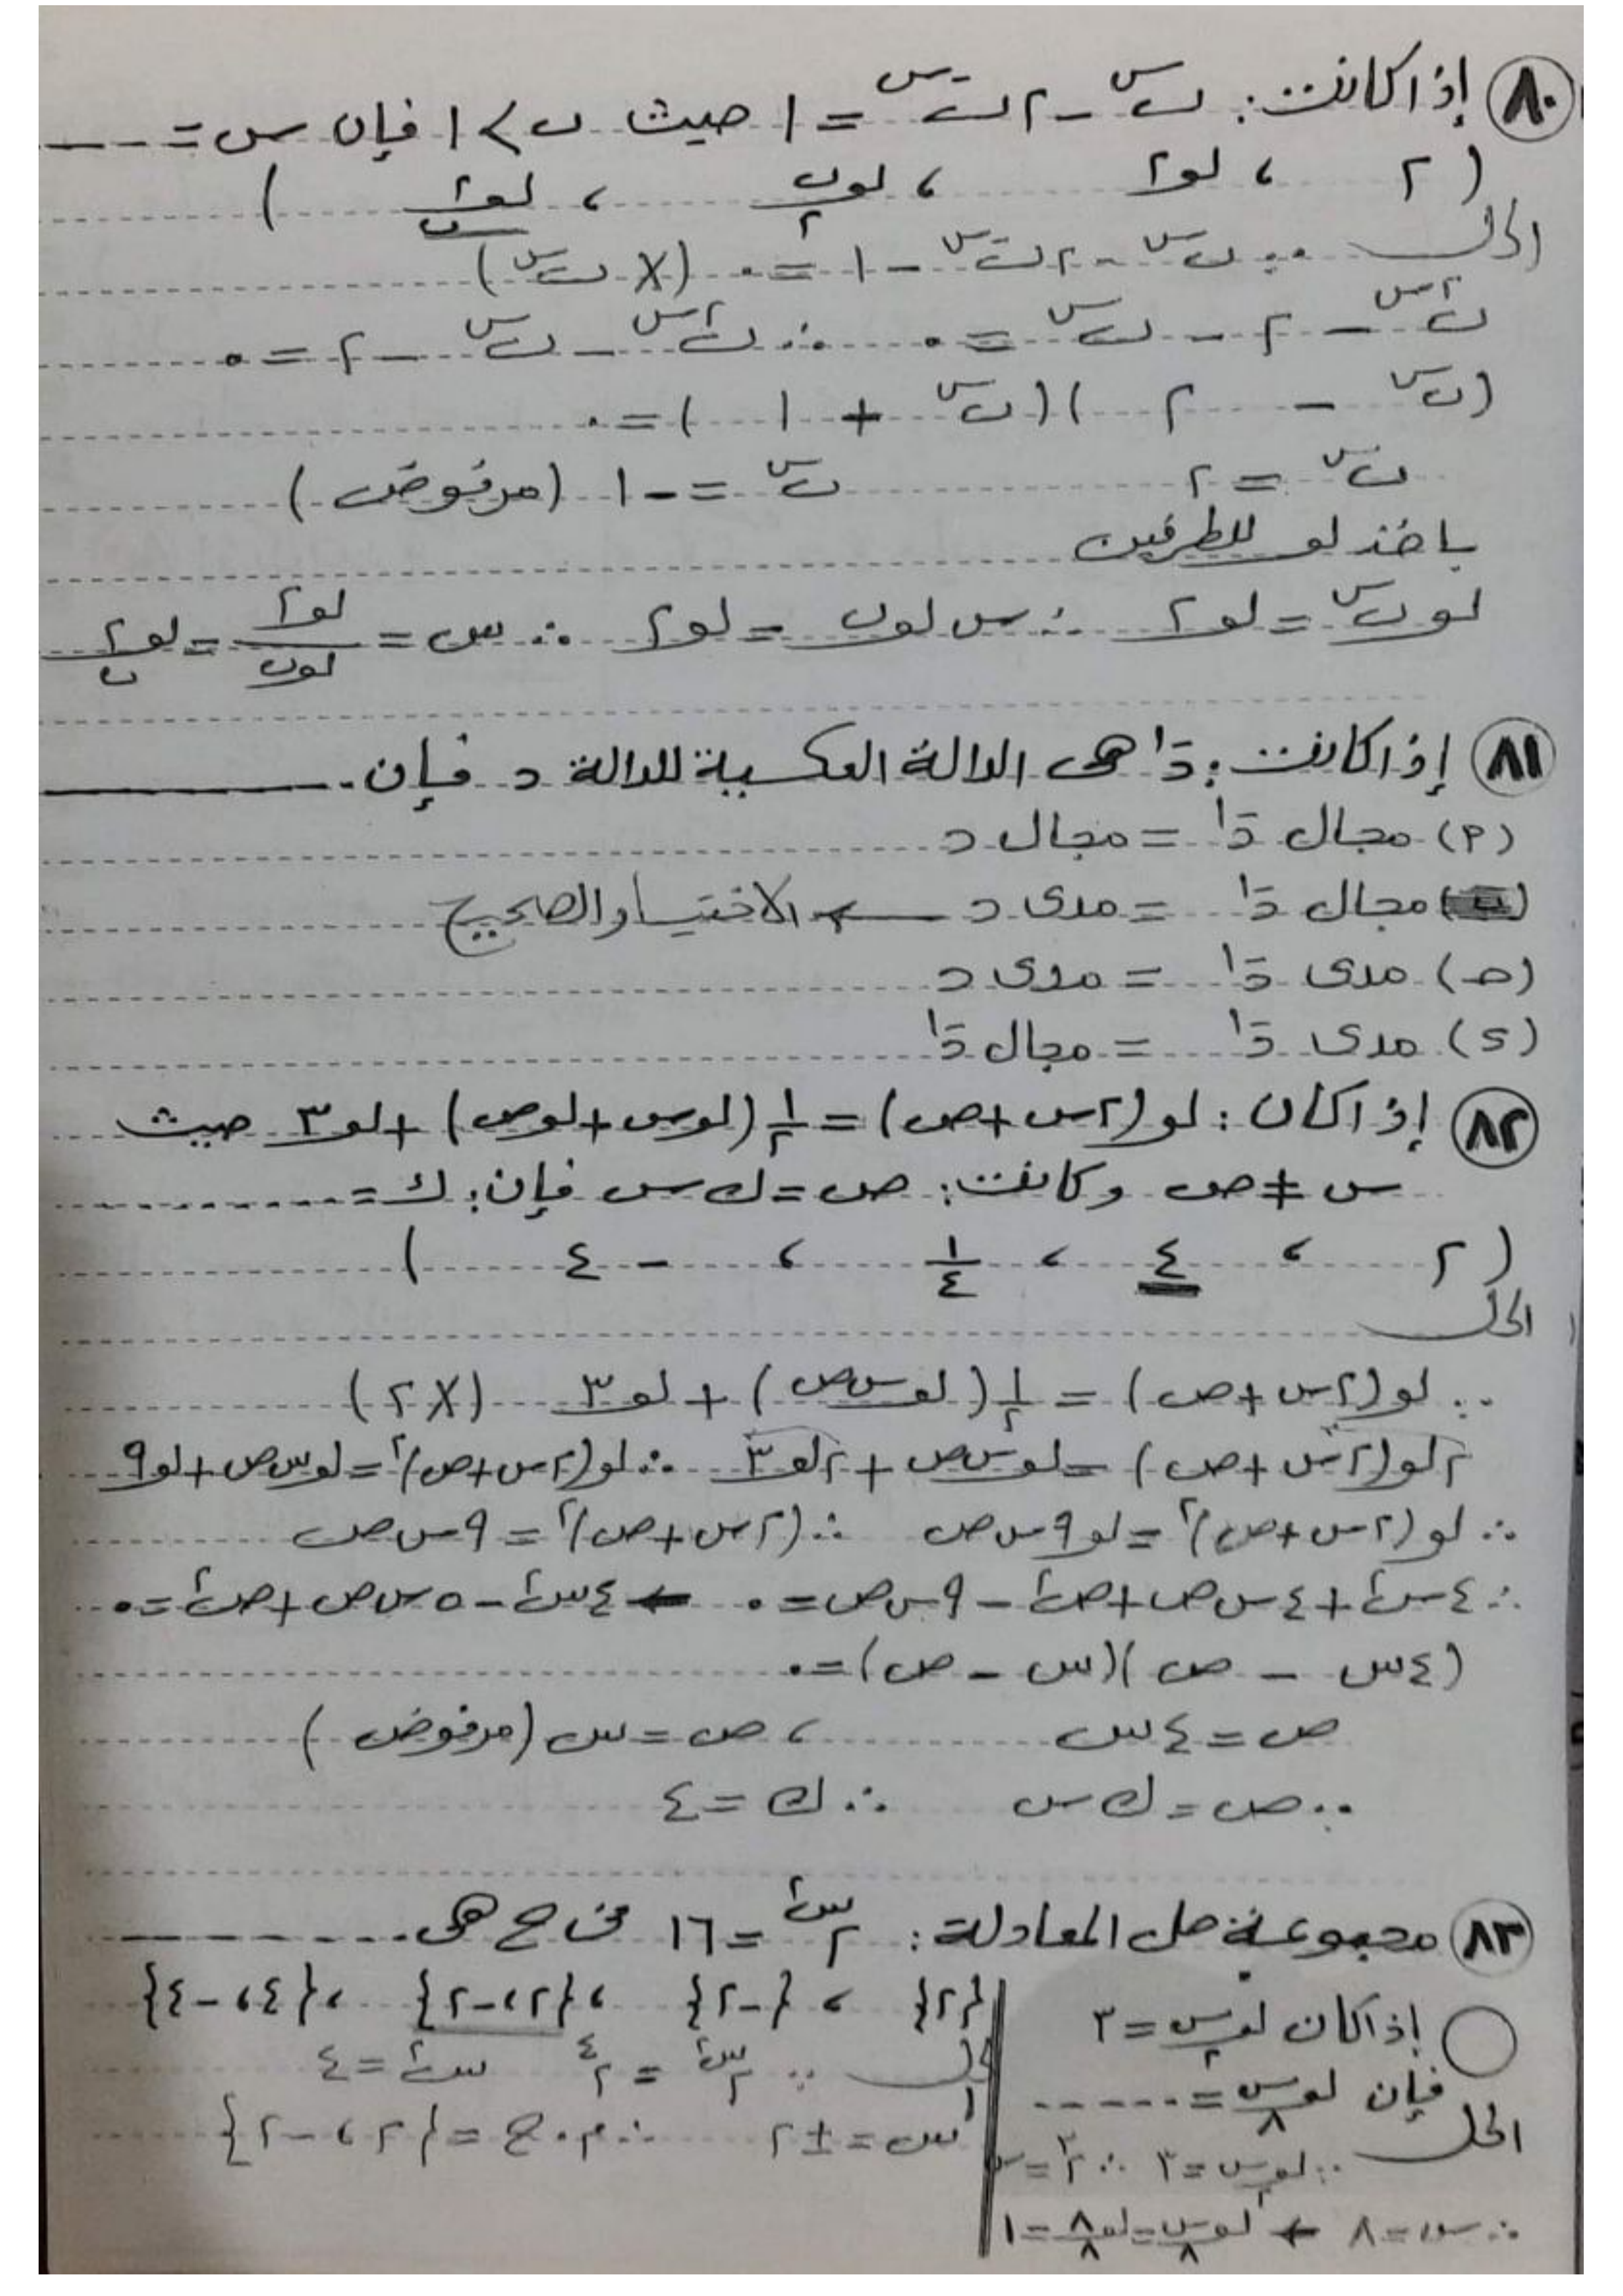 (٨٠) إذا كانت: ب^س - ٢ب^-س = ١ حيث ب > ١ فإن س = ـــــ
(٢ ، لو٢ ، لو_٢ ب ، لو_ب ٢ )
الحل ∵ ب^س - ٢ب^-س - ١ = ٠ (× ب^س)
ب^٢س - ٢ - ب^س = ٠ ∴ ب^٢س - ب^س - ٢ = ٠
(ب^س - ٢)(ب^س + ١) = ٠
ب^س = ٢ ب^س = -١ (مرفوض)
باخذ لو للطرفين
لو ب^س = لو٢ ∴ س لو ب = لو٢ ∴ س = لو٢/لو ب = لو_ب ٢
(٨١) إذا كانت: د^-١ هى الدالة العكسية للدالة د فإن ـــــ
(٢) مجال د^-١ = مجال د
(ب) مجال د^-١ = مدى د ← الاختيار الصحيح
(حـ) مدى د^-١ = مدى د
(د) مدى د^-١ = مجال د^-١
(٨٢) إذا كان: لو(٢س+ص) = ١/٢(لوس+لوص)+لو٣ حيث
س ≠ ص وكانت: ص = ك س فإن: ك = .........
(٢ ، ٤ ، ١/٤ ، -٤ )
الحل
∵ لو(٢س+ص) = ١/٢(لو س ص) + لو٣ (×٢)
٢لو(٢س+ص) = لو س ص + ٢لو٣ ∴ لو(٢س+ص)^٢ = لو س ص + لو٩
∴ لو(٢س+ص)^٢ = لو٩س ص ∴ (٢س+ص)^٢ = ٩س ص
∴ ٤س^٢+٤س ص+ص^٢-٩س ص=٠ ← ٤س^٢-٥س ص+ص^٢=٠
(٤س - ص)(س - ص) = ٠
ص = ٤س ، ص = س (مرفوض)
∵ ص = ك س ∴ ك = ٤
(٨٣) مجموعة حل المعادلة: ٢^س^٢ = ١٦ فى ح هى ـــــ
{٢} ، {-٢} ، {٢، -٢} ، {٤، -٤}
الحل ∵ ٢^س^٢ = ٢^٤ س^٢ = ٤
س = ±٢ ∴ م.ح = {٢ ، -٢}
إذا كان لو_٢ س = ٣
فإن لو_٨ س = .....
الحل
∵ لو_٢ س = ٣ ∴ ٢^٣ = س
∴ س = ٨ ← لو_٨ س = لو_٨ ٨ = ١